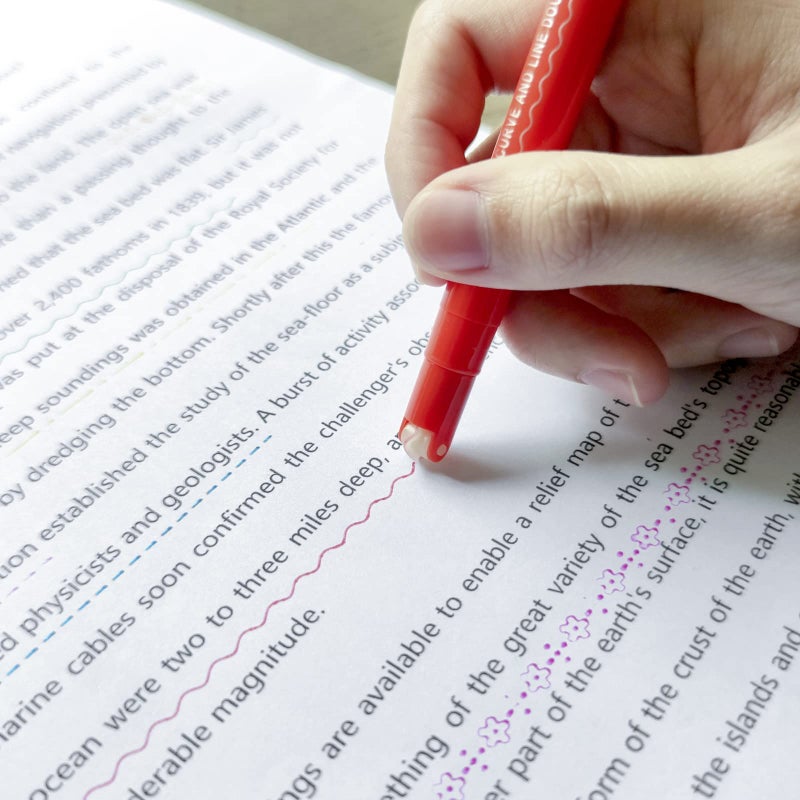 CURVE AND LINE DOU
confined to the
navigation prompted by
to the bed the open sea was
than a passing thought to the
ned that the sea bed was flat. Sir James
over 2,400 fathoms in 1839, but it was not
was put at the disposal of the Royal Society for
eep soundings was obtained in the Atlantic and the
by dredging the bottom. Shortly after this the famo
tion established the study of the sea-floor as a subj
ed physicists and geologists. A burst of activity asso
arine cables soon confirmed the challenger's obs
ocean were two to three miles deep, a
derable magnitude.
ngs are available to enable a relief map of t
ething of the great variety of the sea bed's topo
er part of the earth's surface, it is quite reasonabl
orm of the crust of the earth, with
the islands and